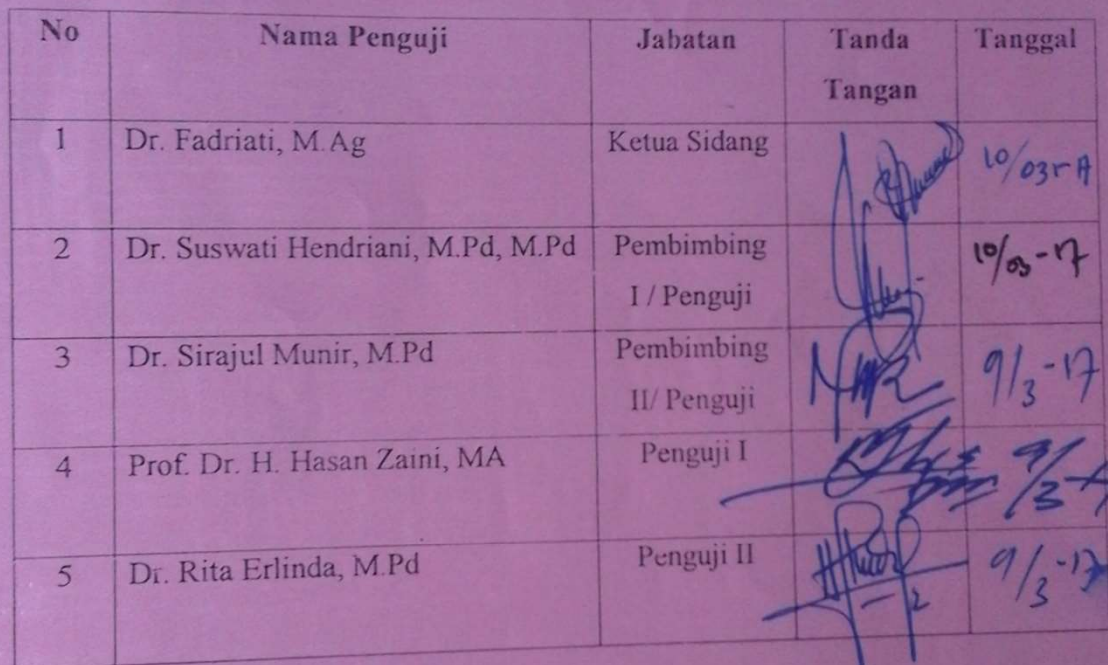 No Nama Penguji Jabatan Tanda Tanggal
Tangan
1 Dr. Fadriati, M.Ag Ketua Sidang 10/03-17
2 Dr. Suswati Hendriani, M.Pd, M.Pd Pembimbing 10/03-17
I / Penguji
3 Dr. Sirajul Munir, M.Pd Pembimbing 9/3-17
II/ Penguji
4 Prof. Dr. H. Hasan Zaini, MA Penguji I 9/3
5 Dr. Rita Erlinda, M.Pd Penguji II 9/3-17